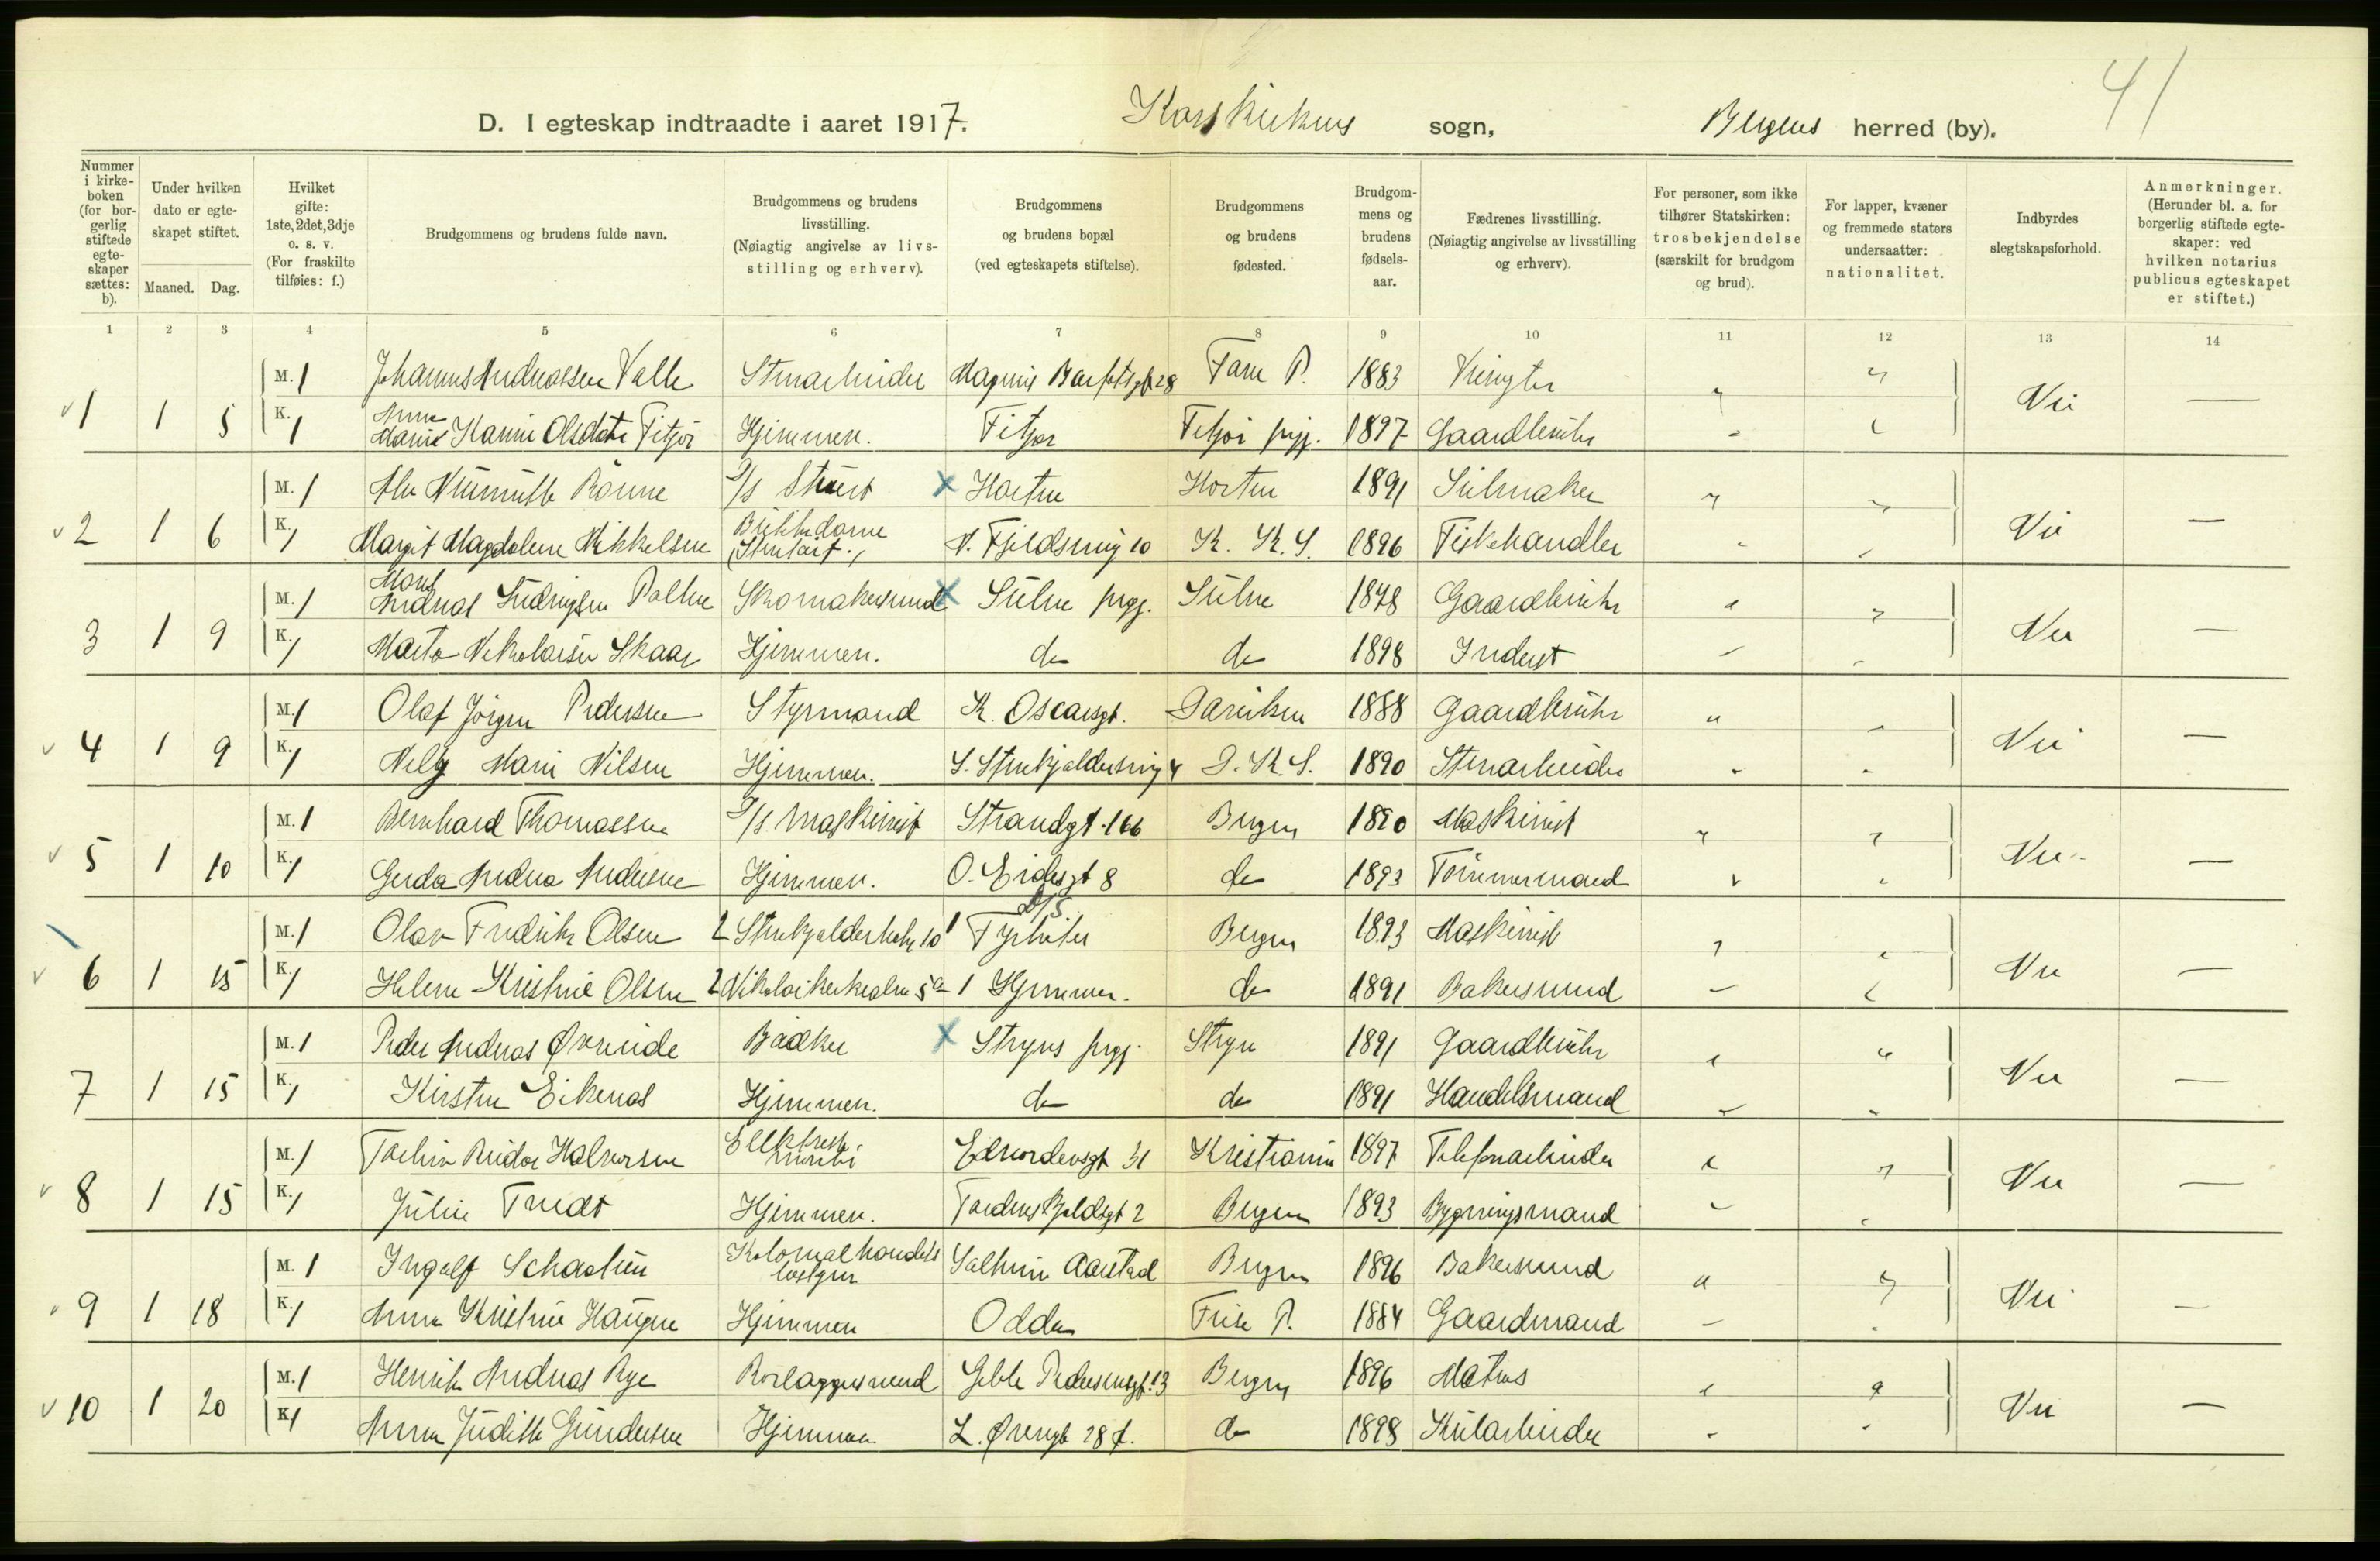 41
D. I egteskap indtraadte i aaret 1917. Korskirkens sogn, Bergens herred (by).
Nummer i kirkeboken (for borgerlig stiftede egteskaper sættes: b).
Under hvilken dato er egteskapet stiftet.
Maaned. Dag.
Hvilket gifte: 1ste, 2det, 3dje o. s. v. (For fraskilte tilføies: f.)
Brudgommens og brudens fulde navn.
Brudgommens og brudens livsstilling. (Nøiagtig angivelse av livsstilling og erhverv).
Brudgommens og brudens bopæl (ved egteskapets stiftelse).
Brudgommens og brudens fødested.
Brudgommens og brudens fødselsaar.
Fædrenes livsstilling. (Nøiagtig angivelse av livsstilling og erhverv).
For personer, som ikke tilhører Statskirken: trosbekjendelse (særskilt for brudgom og brud).
For lapper, kvæner og fremmede staters undersaatter: nationalitet.
Indbyrdes slegtskapsforhold.
Anmerkninger. (Herunder bl. a. for borgerlig stiftede egteskaper: ved hvilken notarius publicus egteskapet er stiftet.)
1 2 3 4 5 6 7 8 9 10 11 12 13 14
M. 1 Johannes Andreassen Valle Stenarbeider Magnus Barfotsgt 28 Fane P. 1883 " "
1 1 5 Nei —
K. 1 Anna Karine Olsdatter Fitjar Hjemmen. Fitjar Fitjar prgj. 1897 Gaardbruker " "
M. 1 Rönne D/S Stuert x Horten Horten 1891 Seilmaker " "
2 1 6 Nei —
K. 1 Margit Magdalene Mikkelsen Bikkedame (Stuert.) N. Fjeldsmug 10 K. K. S. 1896 Fiskehandler " "
M. 1 Mons Andreas Skomakersvend x Sulen prgj. Sulen 1898 Gaardbruker " "
3 1 9 Nei —
K. 1 Marta Nikolaisen Skaar Hjemmen. do do 1898 Inderst " "
M. 1 Olaf Jörgen Pedersen Styrmand K. Oscarsgt. 1888 Gaardbruker " "
4 1 9 Nei —
K. 1 Nelly Marie Nilsen Hjemmen. S. Stenkjeldersmug 4 D. K. S. 1890 Stenarbeider " "
M. 1 Bernhard Thomassen D/S Maskinist Strandgt. 166 Bergen 1890 Maskinist " "
5 1 10 Nei —
K. 1 Gerda Andrea Andersen Hjemmen. O. Eidesgt 8 do 1893 Tömmermand " "
M. 1 Olav Fredrik Olsen 2 Stenkjelderbakk. 10 1 D/S Fyrbøter Bergen 1893 Maskinist " "
6 1 15 Nei —
K. 1 Helene Kristine Olsen 2 Nikolaikirkealm. 5a 1 Hjemmen. do 1891 Bakersvend " "
M. 1 Peder Andreas Øvreeide Bödker x Stryns prgj. Stryn 1891 Gaardbruker " "
7 1 15 Nei —
K. 1 Kirsten Eikenæs Hjemmen. do do 1891 Handelsmand " "
M. 1 Torleiv Reidar Halvorsen Elektrisk montör Edvardensgt 31 Kristiania 1897 Telefonarbeider " "
8 1 15 Nei —
K. 1 Julie Tredt Hjemmen. Tordenskjoldsgt 2 Bergen 1893 Bygningsmand " "
M. 1 Ingolf Kolonialhandels betjent Solheim Aarstad Bergen 1896 Bakersvend " "
9 1 18 Nei —
K. 1 Anna Kristine Haugen Hjemmen Odda P. 1884 Gaardmand " "
M. 1 Henrik Andreas Rye Rørlæggersvend Geble Pedersensgt. 13 Bergen 1896 Matros " "
10 1 20 Nei —
K. 1 Anna Judith Gundersen Hjemmen L. Øvregt 28 f. do 1898 Kularbeider " "